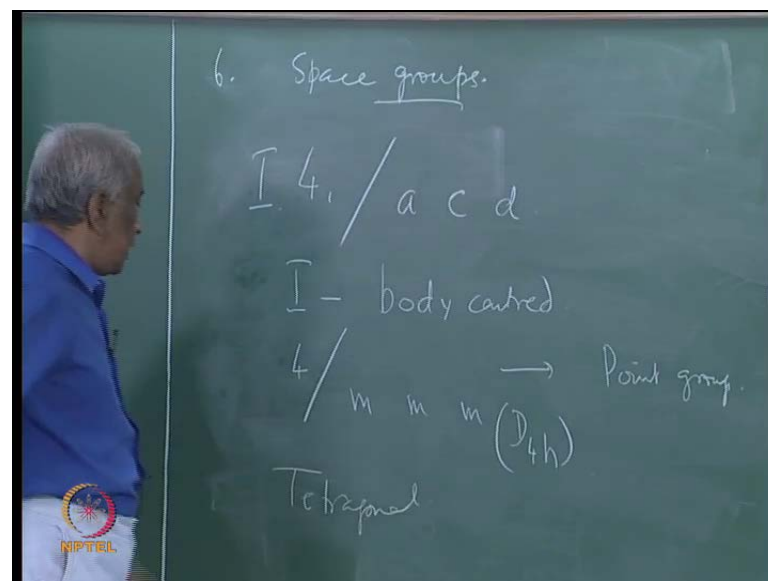 6. Space groups.
I 4₁ / a c d.
I - body centred
4 / m m m (D4h) → Point group.
Tetragonal
NPTEL